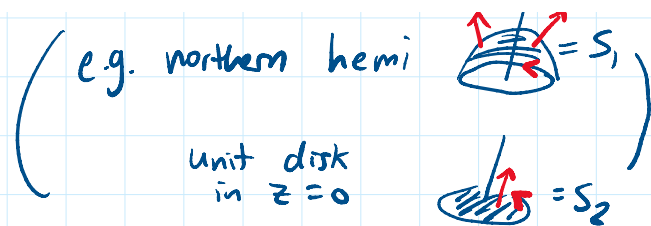 (e.g. northern hemi = S₁
unit disk
in z=0 = S₂)